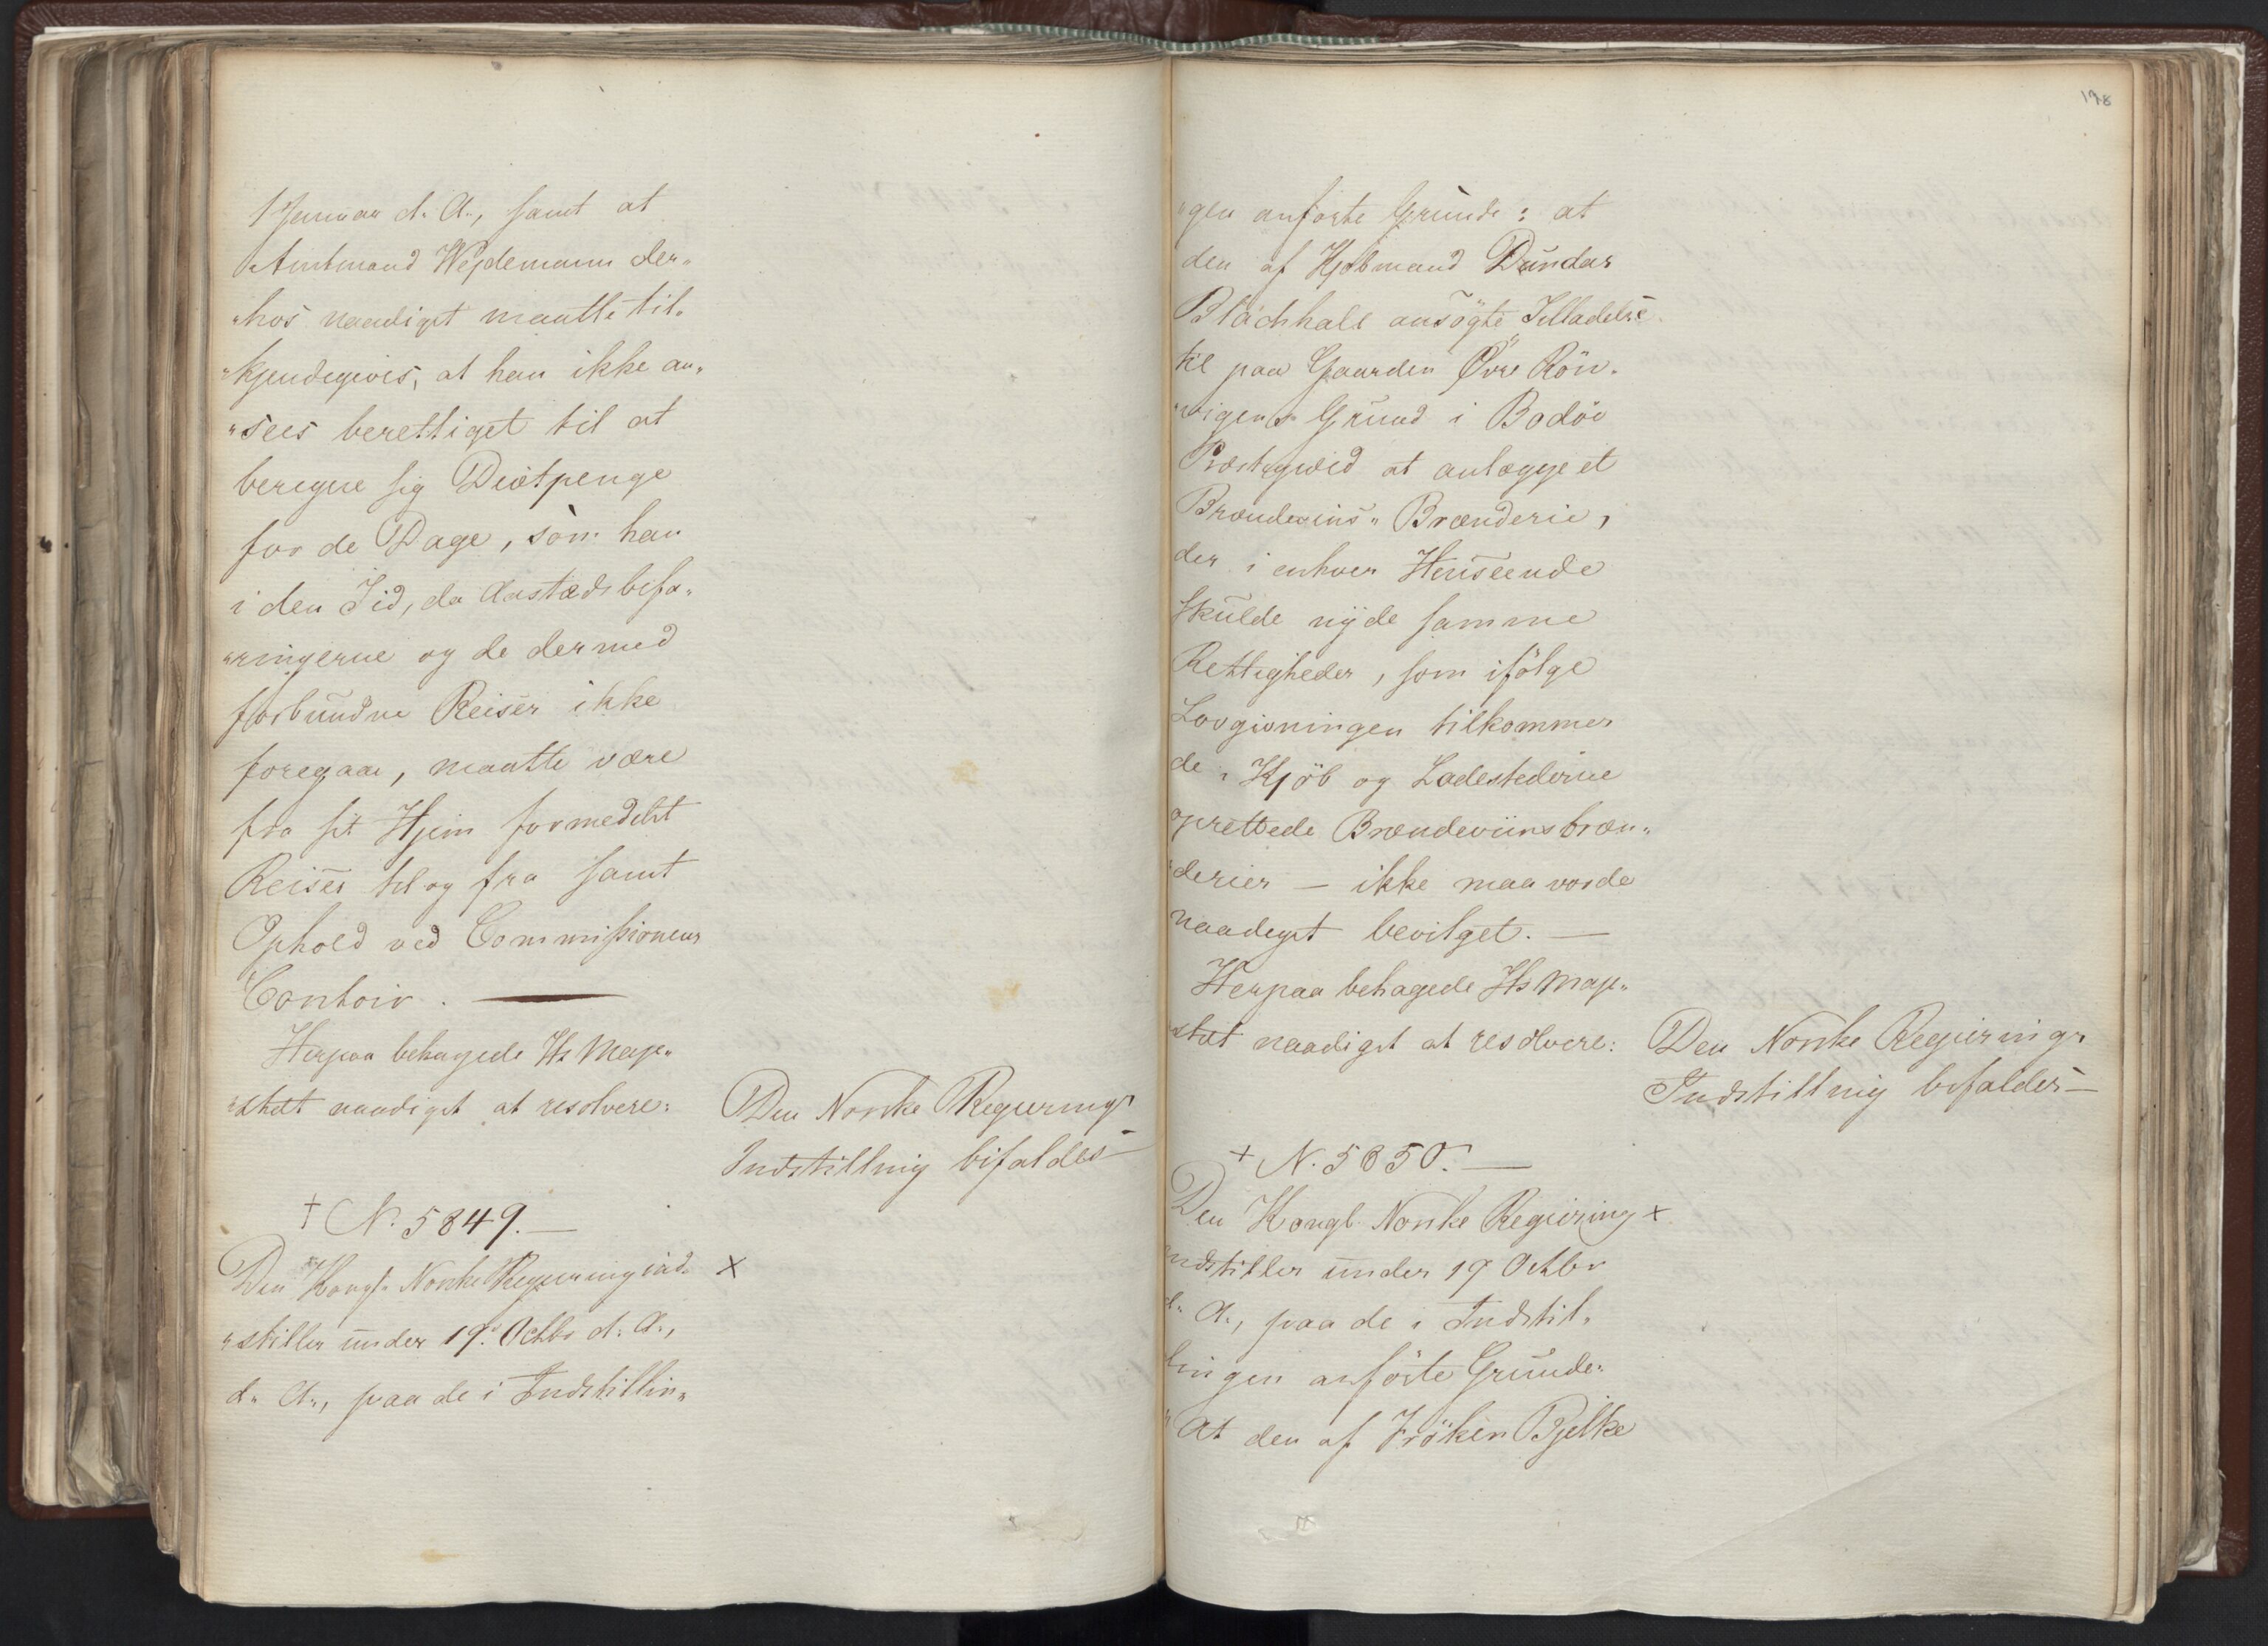 1 Januar d. A., samt at
Amtmand Wejdemann der„
„hos naadigst maatte til„
„kjendegives, at han ikke an„
„sees berettiget til at
beregne sig Diætpenge
for de Dage, som han
i den Tid, da Aastædsbefa„
„ringerne og de dermed
forbundne Reiser ikke
foregaae, maatte være
fra sit Hjem formedelst
Reiser til og fra samt
Ophold ved Commissionens
Contoir. —
Herpaa behagede Hs Maje„
„stæt naadigst at resolvere:
Den Norske Regjerings
Indstilling bifaldes —
† N. 5849. —
Den Kongl. Norske Regjering ind„ x
„stiller under 19. Octbr d. A.,
d. A., paa de i Indstillin„
198
„gen anførte Grunde: at
den af Kjøbmand Dundas
Blackhall ansøgte Tilladelse
til paa Gaarden Øvre Rön„
„vigens Grund i Bodøe
Præstegield at anlægge et
Brændeviins„Brænderie,
der i enhver Henseende
skulde nyde samme
Rettigheder, som ifølge
Lovgivningen tilkommer
de i Kjöb og Ladestederne
oprettede Brændeviinsbræn„
„derier — ikke maa vorde
naadigst bevilget. —
Herpaa behagede Hs Maje„
„stæt naadigst at resolvere:
Den Norske Regjerings
Indstilling bifaldes —
+ N. 5850. —
Den Kongl. Norske Regjering x
indstiller under 19 Octbr
d. A., paa de i Indstil„
lingen anførte Grunde:
„At den af Frøken Bjelke